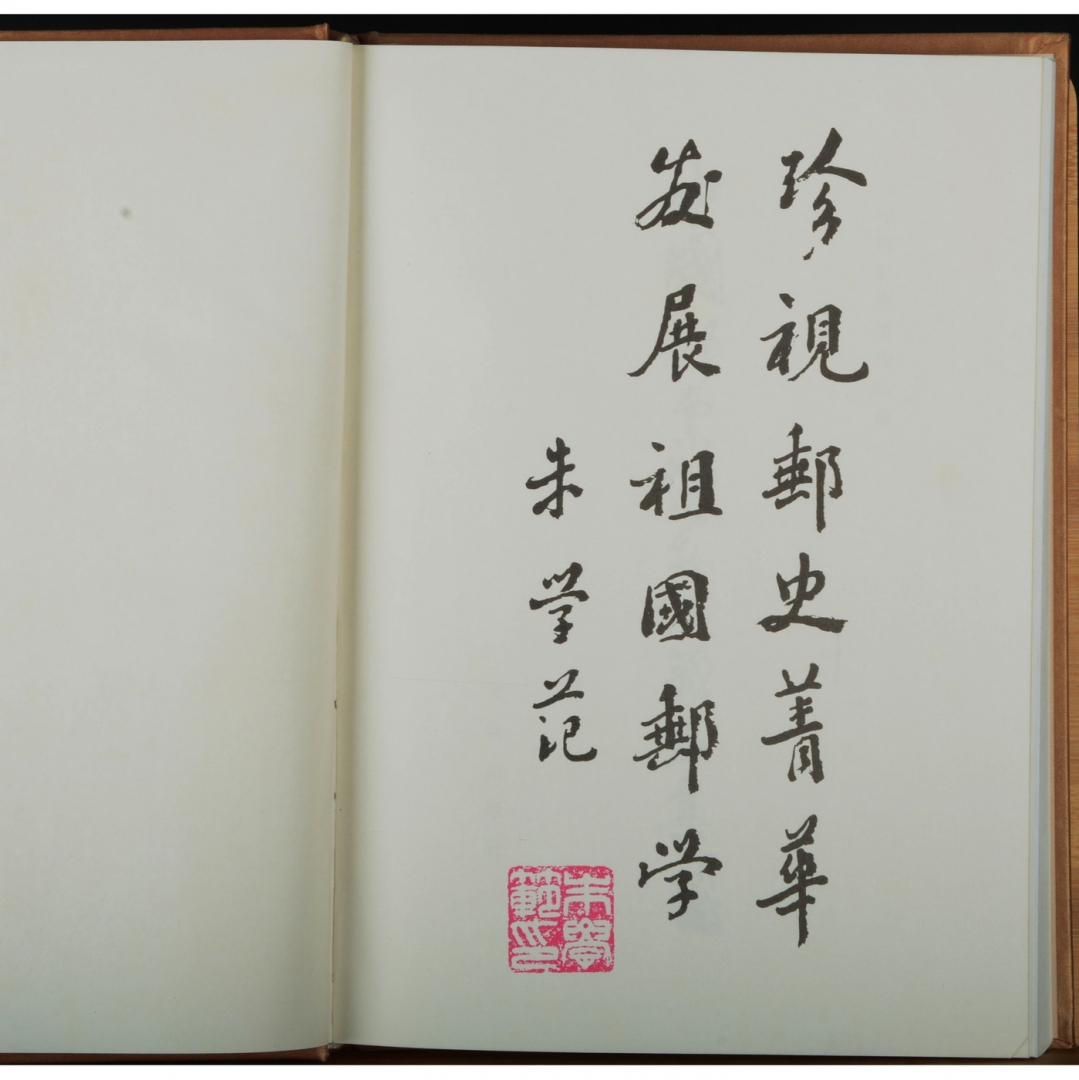 珍視郵史菁華
发展祖國郵学
朱学范
朱學範印